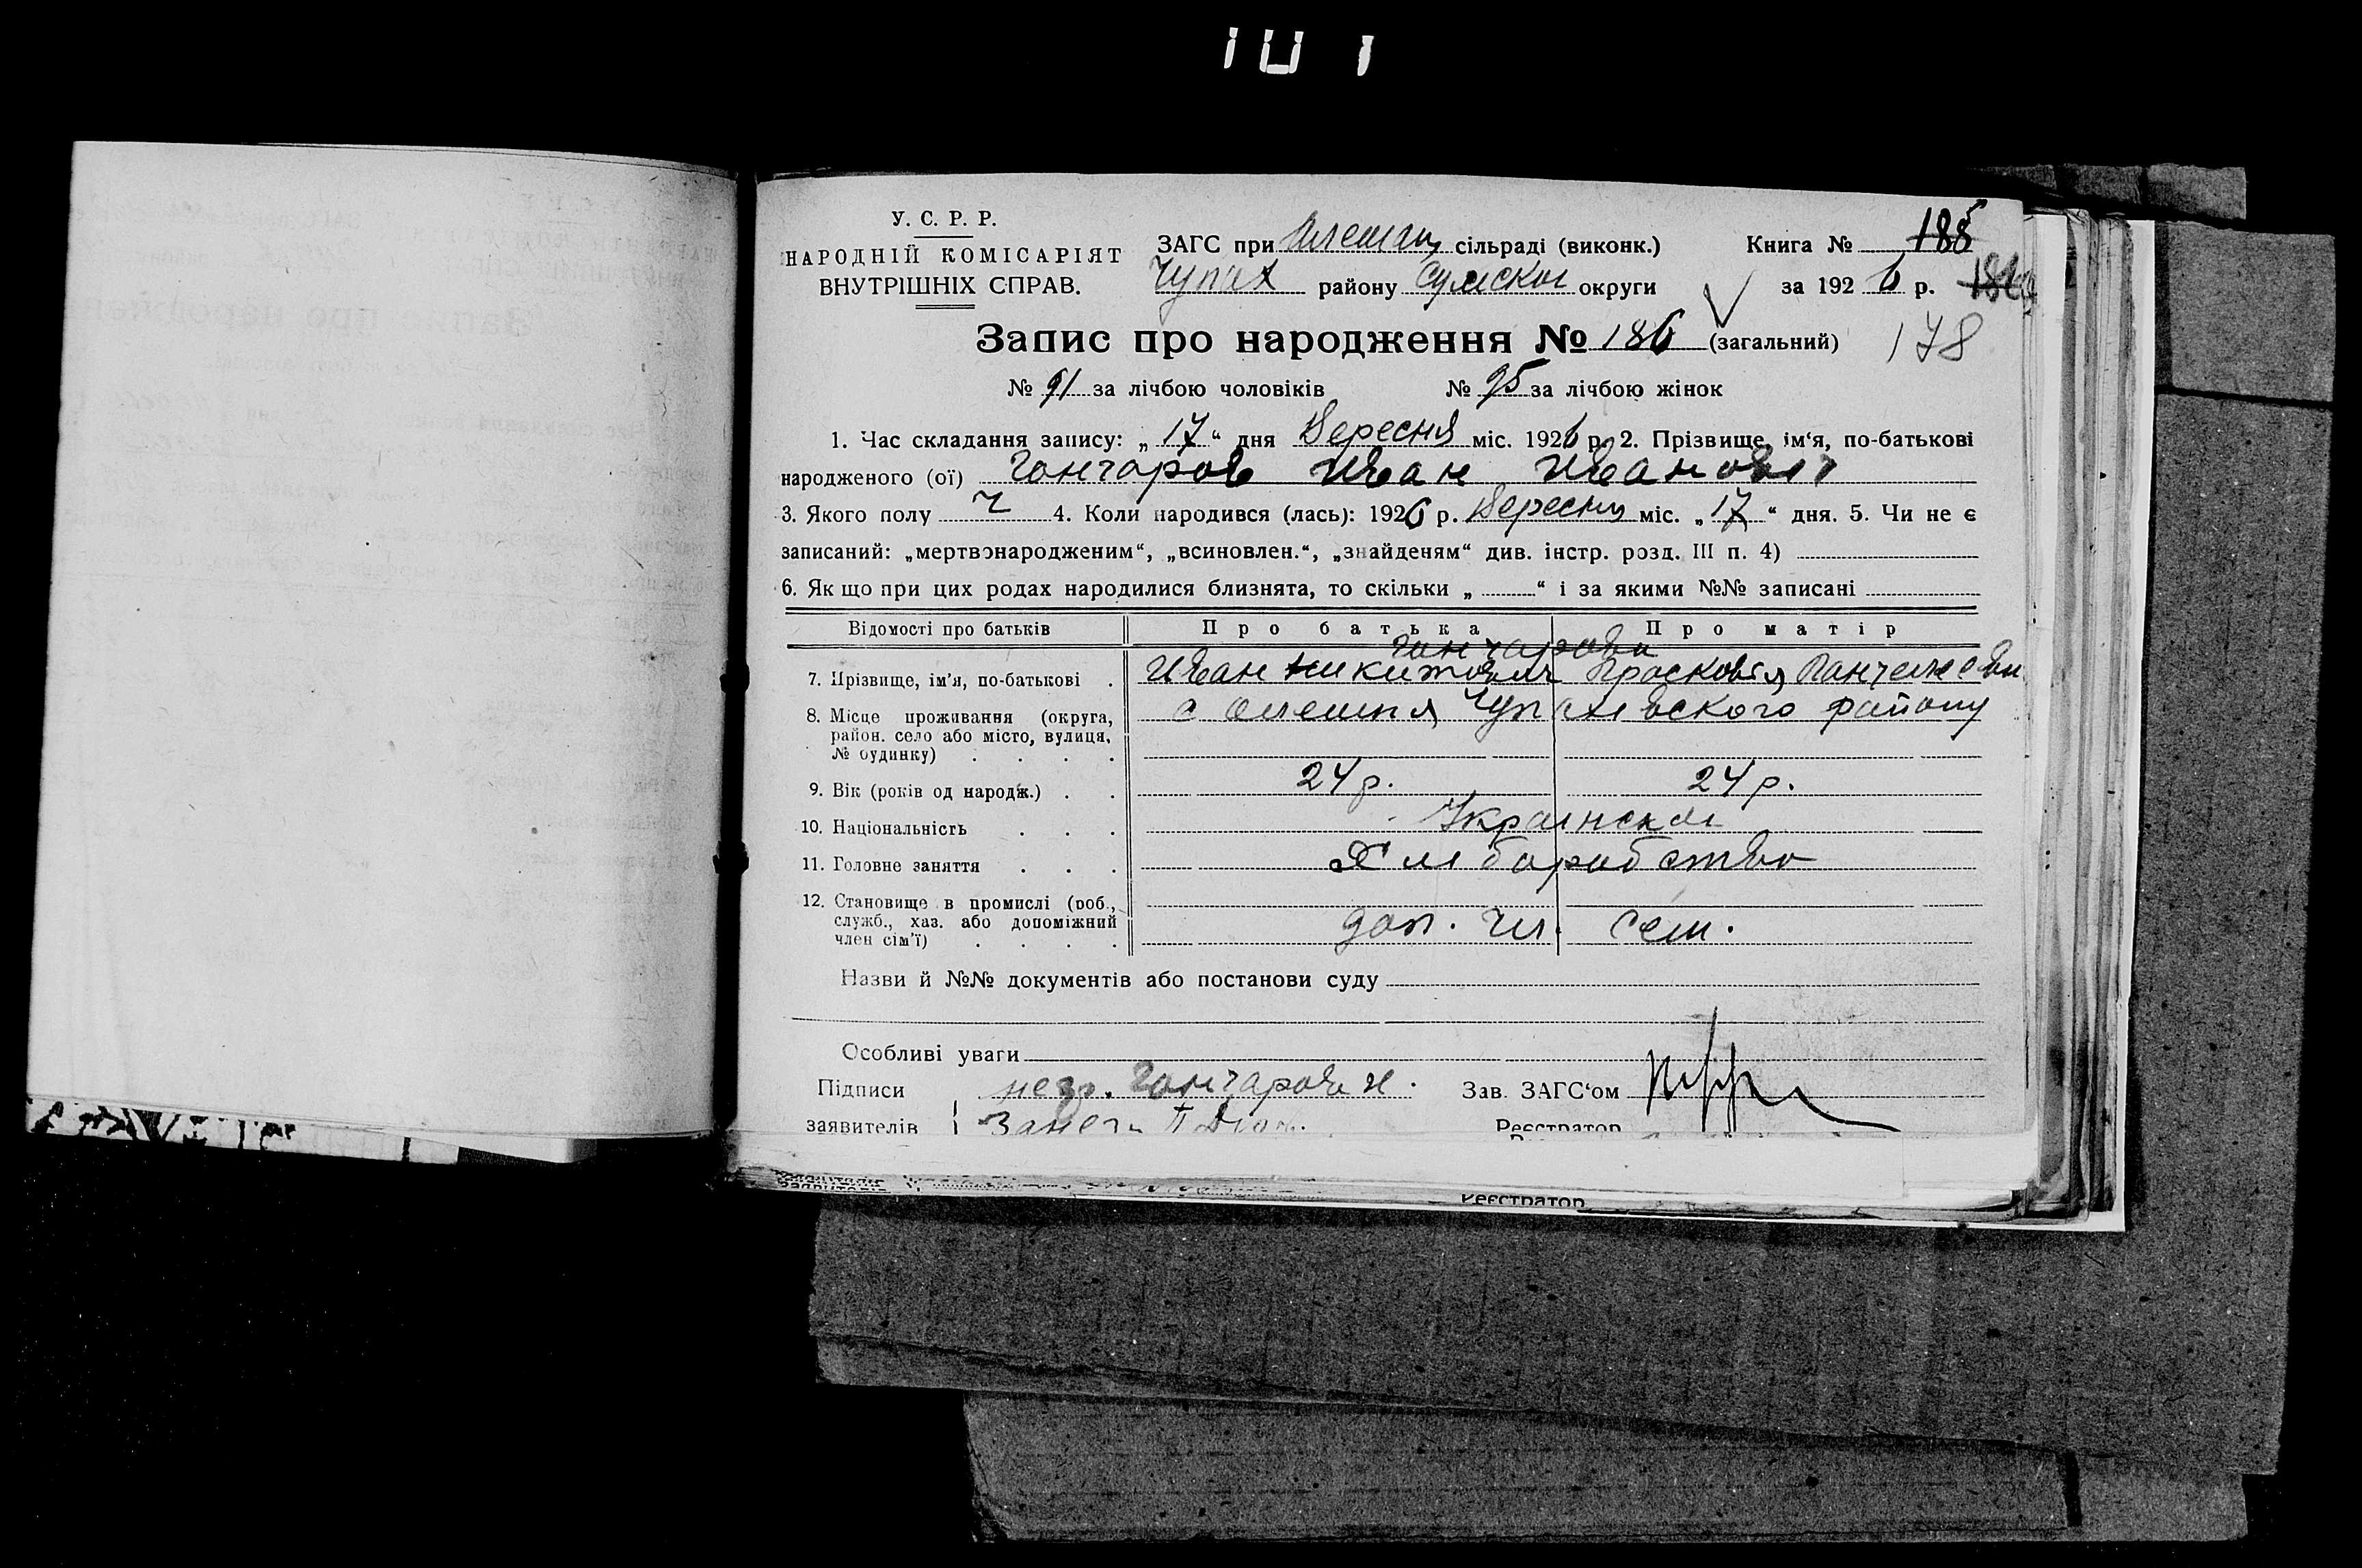 У. С. Р. Р.
НАРОДНІЙ КОМІСАРІЯТ
ВНУТРІШНІХ СПРАВ.
ЗАГС при сільраді (виконк.)
Чупах району Сумской округи
Книга № 188
за 1926 р.
178
Запис про народження № 186 (загальний)
№ 91 за лічбою чоловіків № 95 за лічбою жінок
1. Час складання запису: „ 17 “ дня Вересня міс. 1926 р. 2. Прізвище, ім‘я, по-батькові
народженого (ої) Гончаров Иван Иванович
3. Якого полу Ч 4. Коли народився (лась): 1926 р. Вересня міс. „ 17 “ дня. 5. Чи не є
записаний: „мертвонародженим“, „всиновлен.“, „знайденям“ див. інстр. розд. III п. 4)
6. Як що при цих родах народилися близнята, то скільки „ “ і за якими №№ записані
Відомості про батьків Про батька Про матір
Гончаровы
7. Прізвище, ім'я, по-батькові . Иван Никитович Прасковія
8. Місце проживання (округа, с Олешня Чупаховского району
район. село або місто, вулиця,
№ будинку) . . . .
9. Вік (років од народж.) . . 24 р. 24 р.
10. Національність . . . Украинской
11. Головне заняття . . . Хлиборобство
12. Становище в промислі (роб.,
служб., хаз. або допоміжний доп. чл. сем.
член сім'ї) . . . .
Назви й №№ документів або постанови суду
Особливі уваги
Підписи негр. Гончаров Зав. ЗАГС‘ом
заявителів Реєстратор
Реєстратор